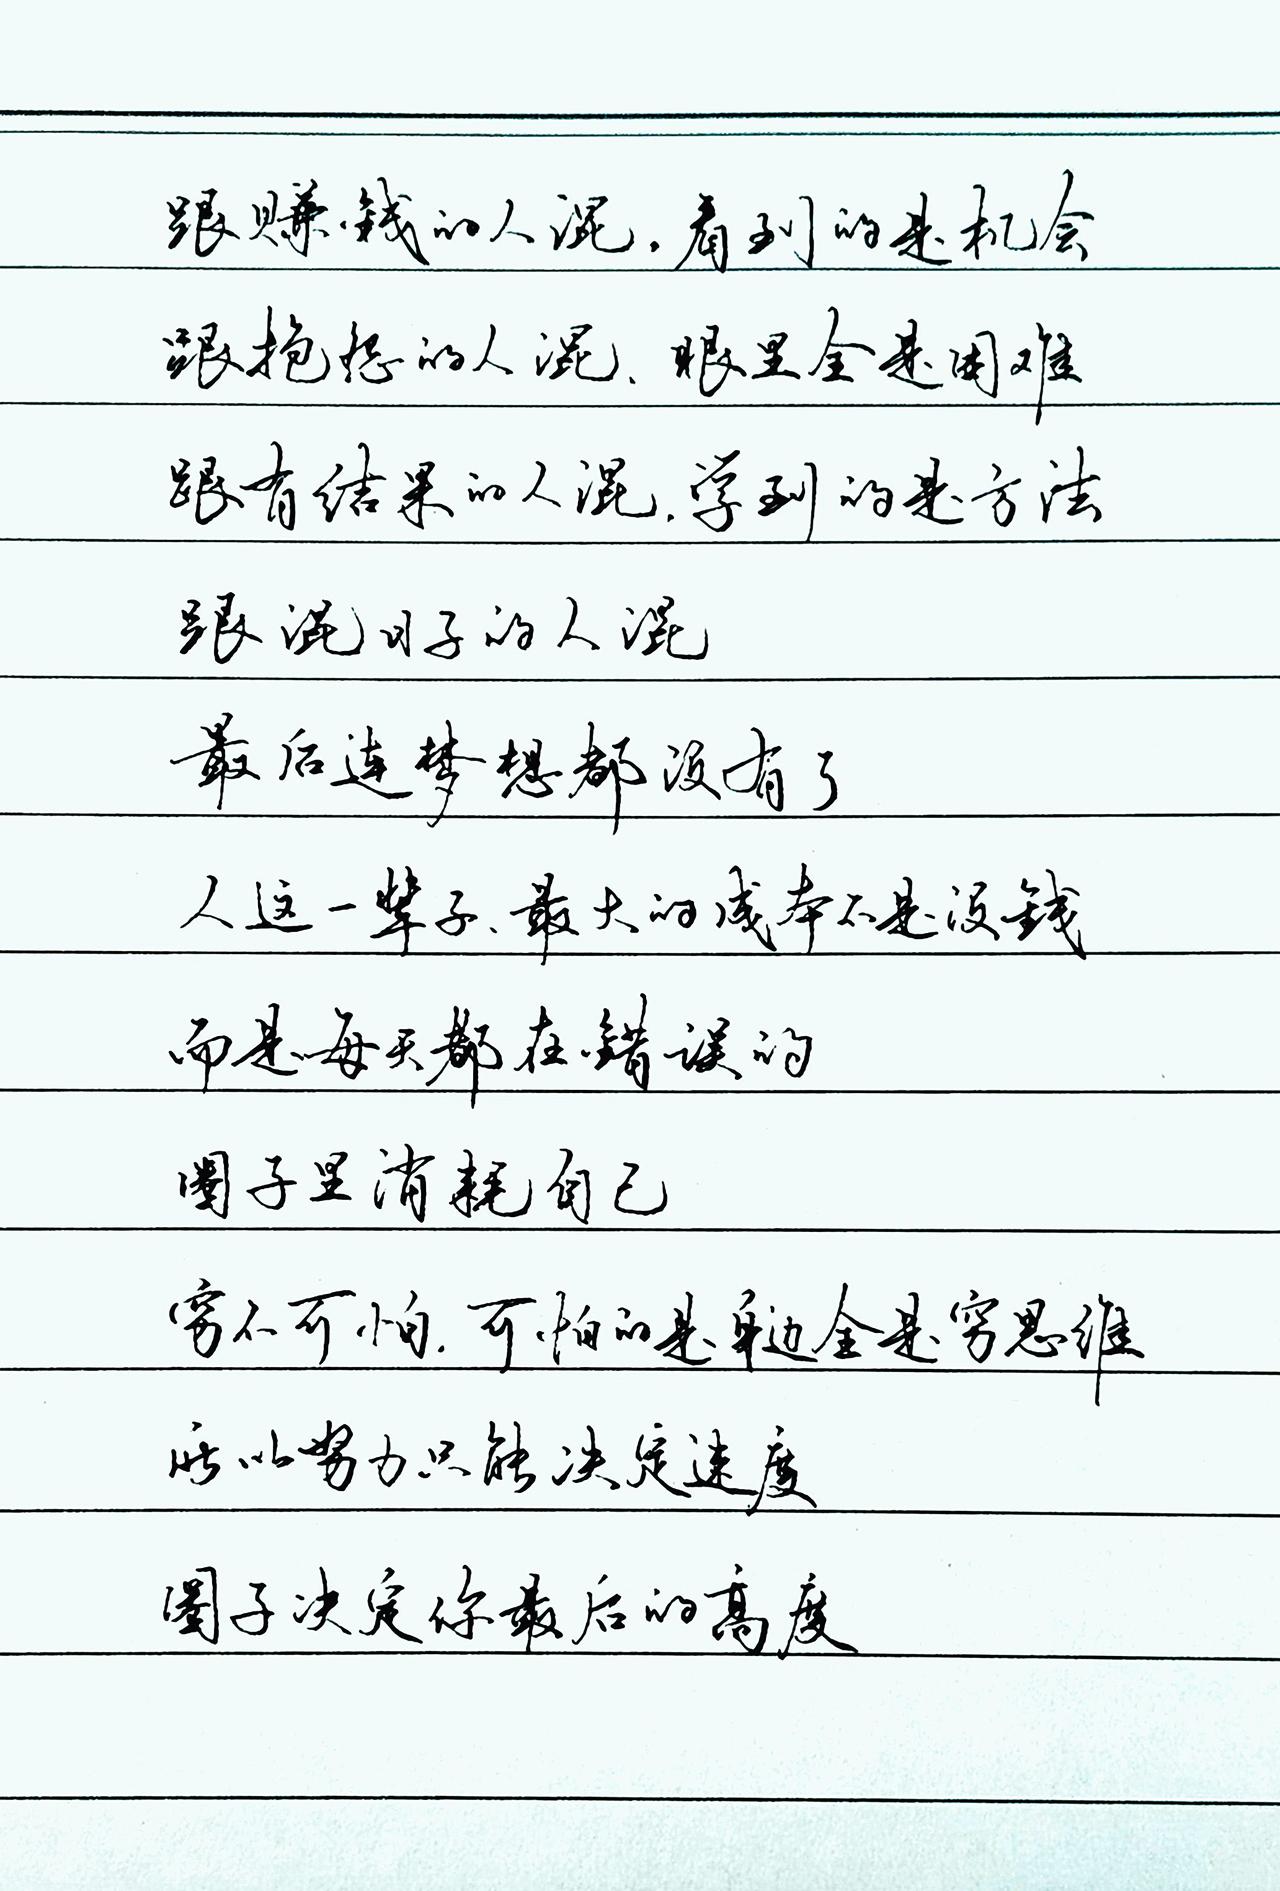 跟赚钱的人混，看到的是机会
跟抱怨的人混、眼里全是困难
跟有结果的人混，学到的是方法
跟混日子的人混
最后连梦想都没有了
人这一辈子、最大的成本不是没钱
而是每天都在错误的
圈子里消耗自己
穷不可怕，可怕的是身边全是穷思维
所以努力只能决定速度
圈子决定你最后的高度